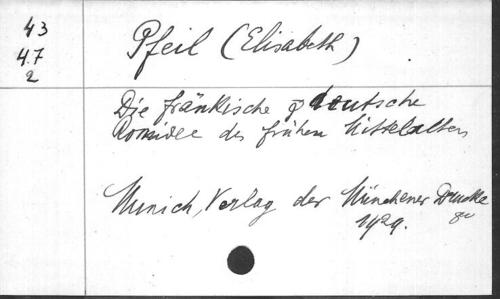 43
47
2
Pfeil (Elisabeth)
Die fränkische φ deutsche
Romidee des frühen Mittelalters
Munich, Verlag der Münchener Drucke
1929. 8º